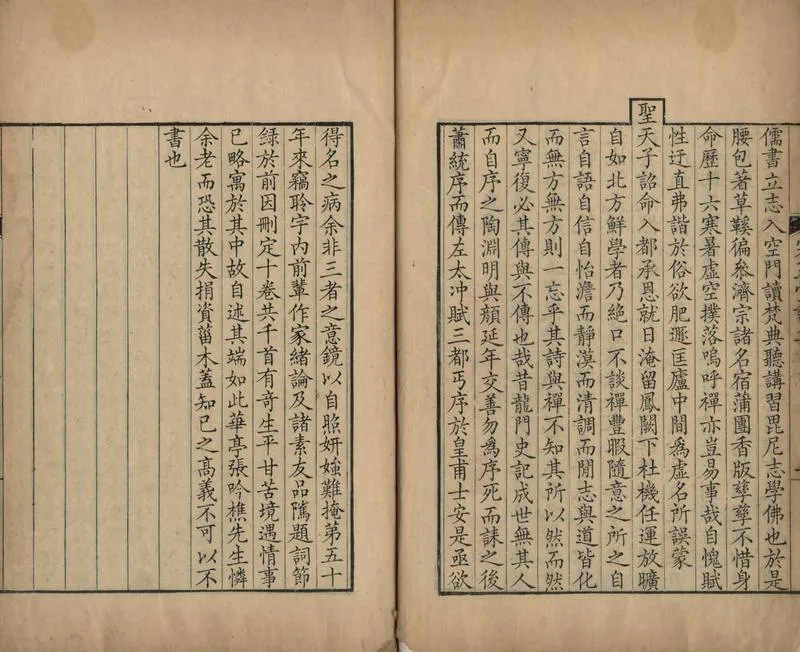 儒書立志入空門讀梵典聽講習毘尼志學佛也於是
腰包著草鞵徧叅濟宗諸名宿蒲團香版孳孳不惜身
命歷十六寒暑虛空撲落嗚呼禪亦豈易事哉自愧賦
性迂直弗諧於俗欲肥遯匡廬中間為虛名所誤蒙
聖天子詔命入都承恩就日淹留鳳闕下杜機任運放曠
自如北方鮮學者乃絕口不談禪豐暇隨意之所之自
言自語自信自怡澹而靜漠而清調而閒志與道皆化
而無方無方則一忘乎其詩與禪不知其所以然而然
又寧復必其傳與不傳也哉昔龍門史記成世無其人
而自序之陶淵明與顏延年交善勿為序死而誄之後
蕭統序而傳左太冲賦三都丐序於皇甫士安是亟欲
得名之病余非三者之意鏡以自照妍媸難掩第五十
年來竊聆宇內前輩作家緒論及諸素友品隲題詞節
錄於前因刪定十卷共千首有奇生平甘苦境遇情事
已略寓於其中故自述其端如此華亭張吟樵先生憐
余老而恐其散失捐資菑木蓋知已之高義不可以不
書也